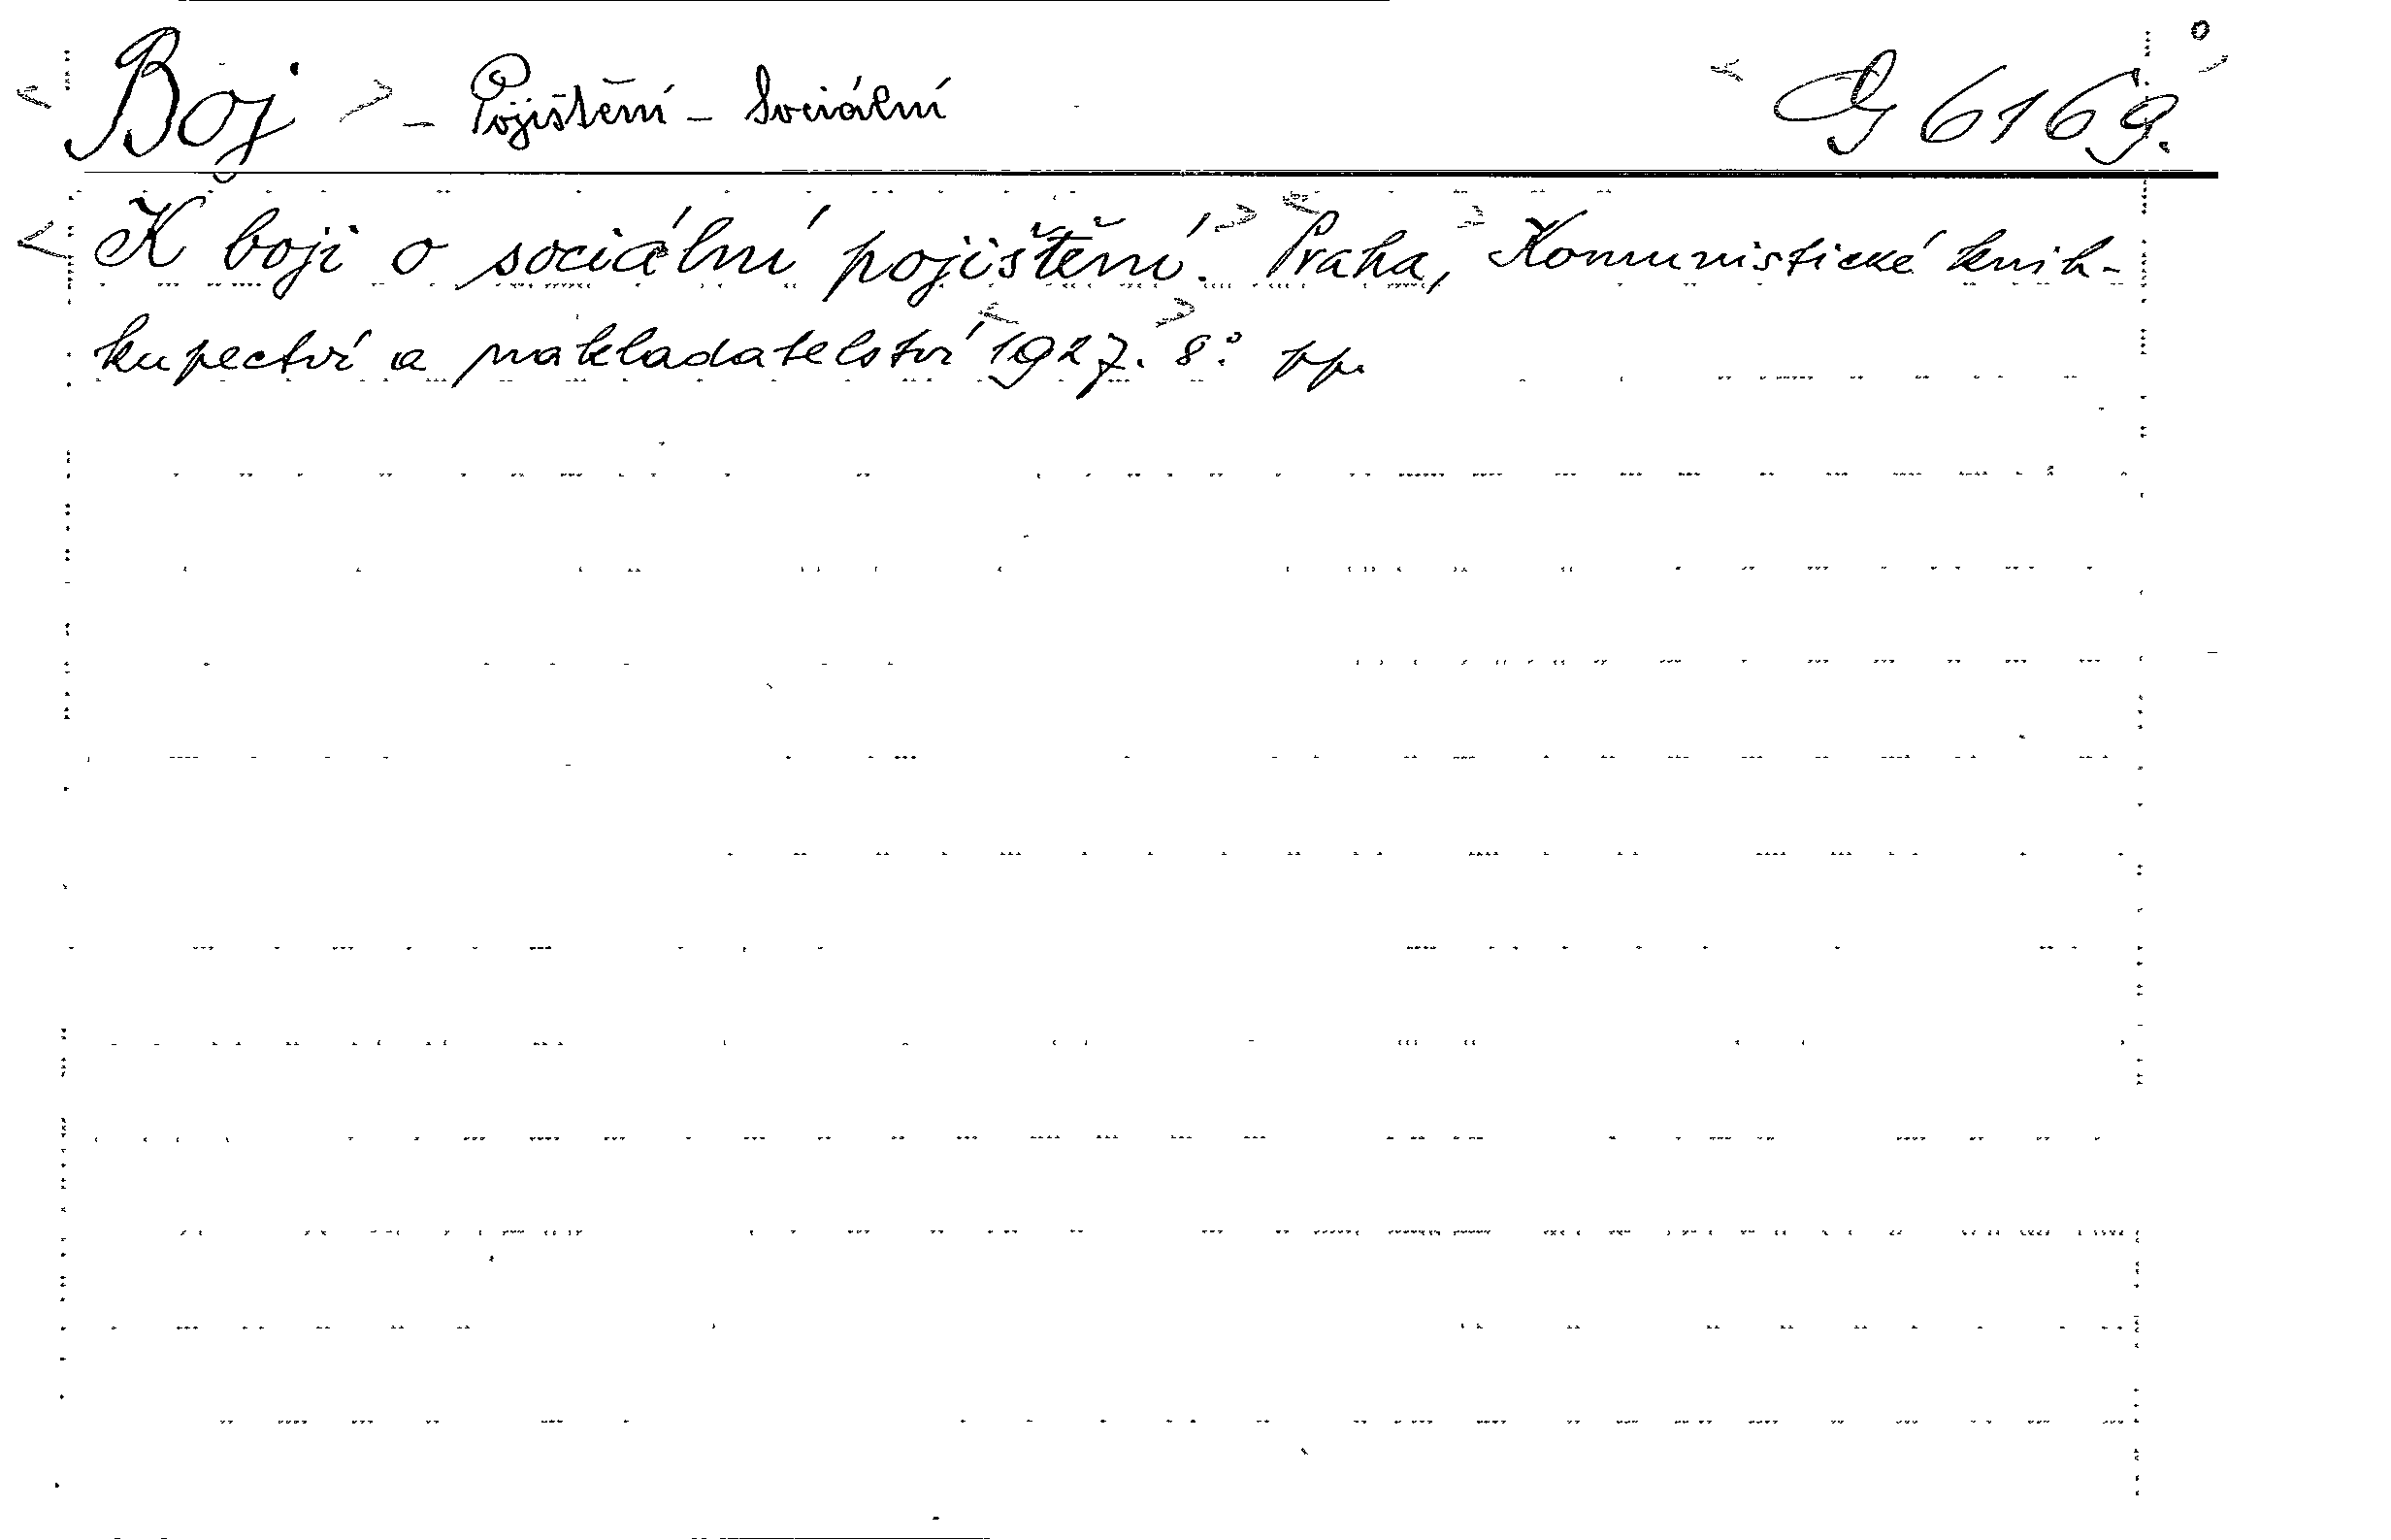 <Boj> - Pojištění - Sociální <G 6169.°>
<K boji o sociální pojištění.> <Praha,> Komunistické knih-
kupectví a nakladatelství <1927.> 8°. pp.